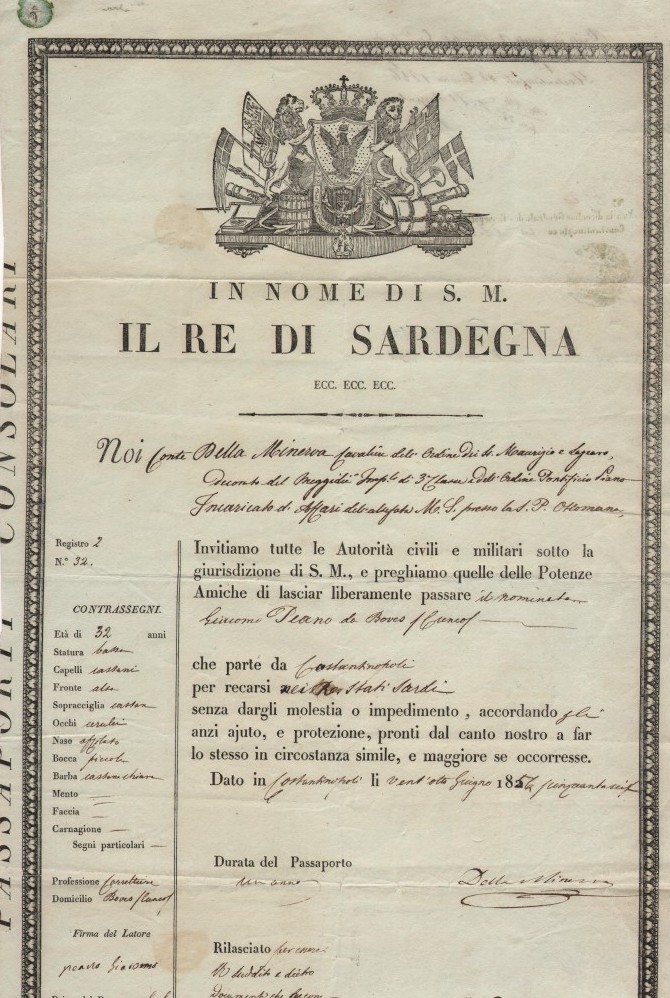 PASSAPORTI CONSOLARI
IN NOME DI S. M.
IL RE DI SARDEGNA
ECC. ECC. ECC.
Noi Conte Della Minerva Cavaliere dell' Ordine dei S. Maurizio e Lazzaro,
decorato del di 3ª Classe e dell' Ordine Pontificio Piano
Incaricato d' Affari M. S. presso la S. P. Ottomana,
Registro 2
N.º 32.
CONTRASSEGNI.
Età di 32 anni
Statura bassa
Capelli castani
Fronte alta
Sopracciglia castane
Occhi cerulei
Naso affilato
Bocca piccola
Barba castano chiara
Mento —
Faccia —
Carnagione —
Segni particolari —
Professione
Domicilio Boves (Cuneo)
Firma del Latore
peano Giacomo
Invitiamo tutte le Autorità civili e militari sotto la
giurisdizione di S. M., e preghiamo quelle delle Potenze
Amiche di lasciar liberamente passare il nominato
Giacomo Peano da Boves (Cuneo)
che parte da Costantinopoli
per recarsi Stati Sardi
senza dargli molestia o impedimento, accordando gli
anzi ajuto, e protezione, pronti dal canto nostro a far
lo stesso in circostanza simile, e maggiore se occorresse.
Dato in Costantinopoli li vent'otto Giugno 1856 cinquantasei
Durata del Passaporto
un anno
Della Minerva
Rilasciato per essere
suddito e dietro
documenti che